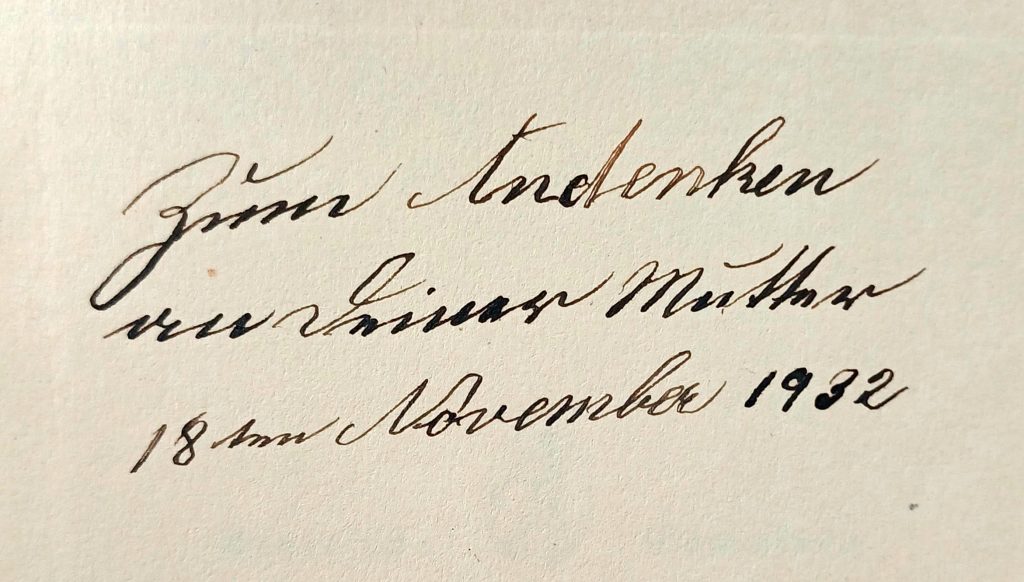 Zum Andenken
an Deiner Mutter
18ten November 1932